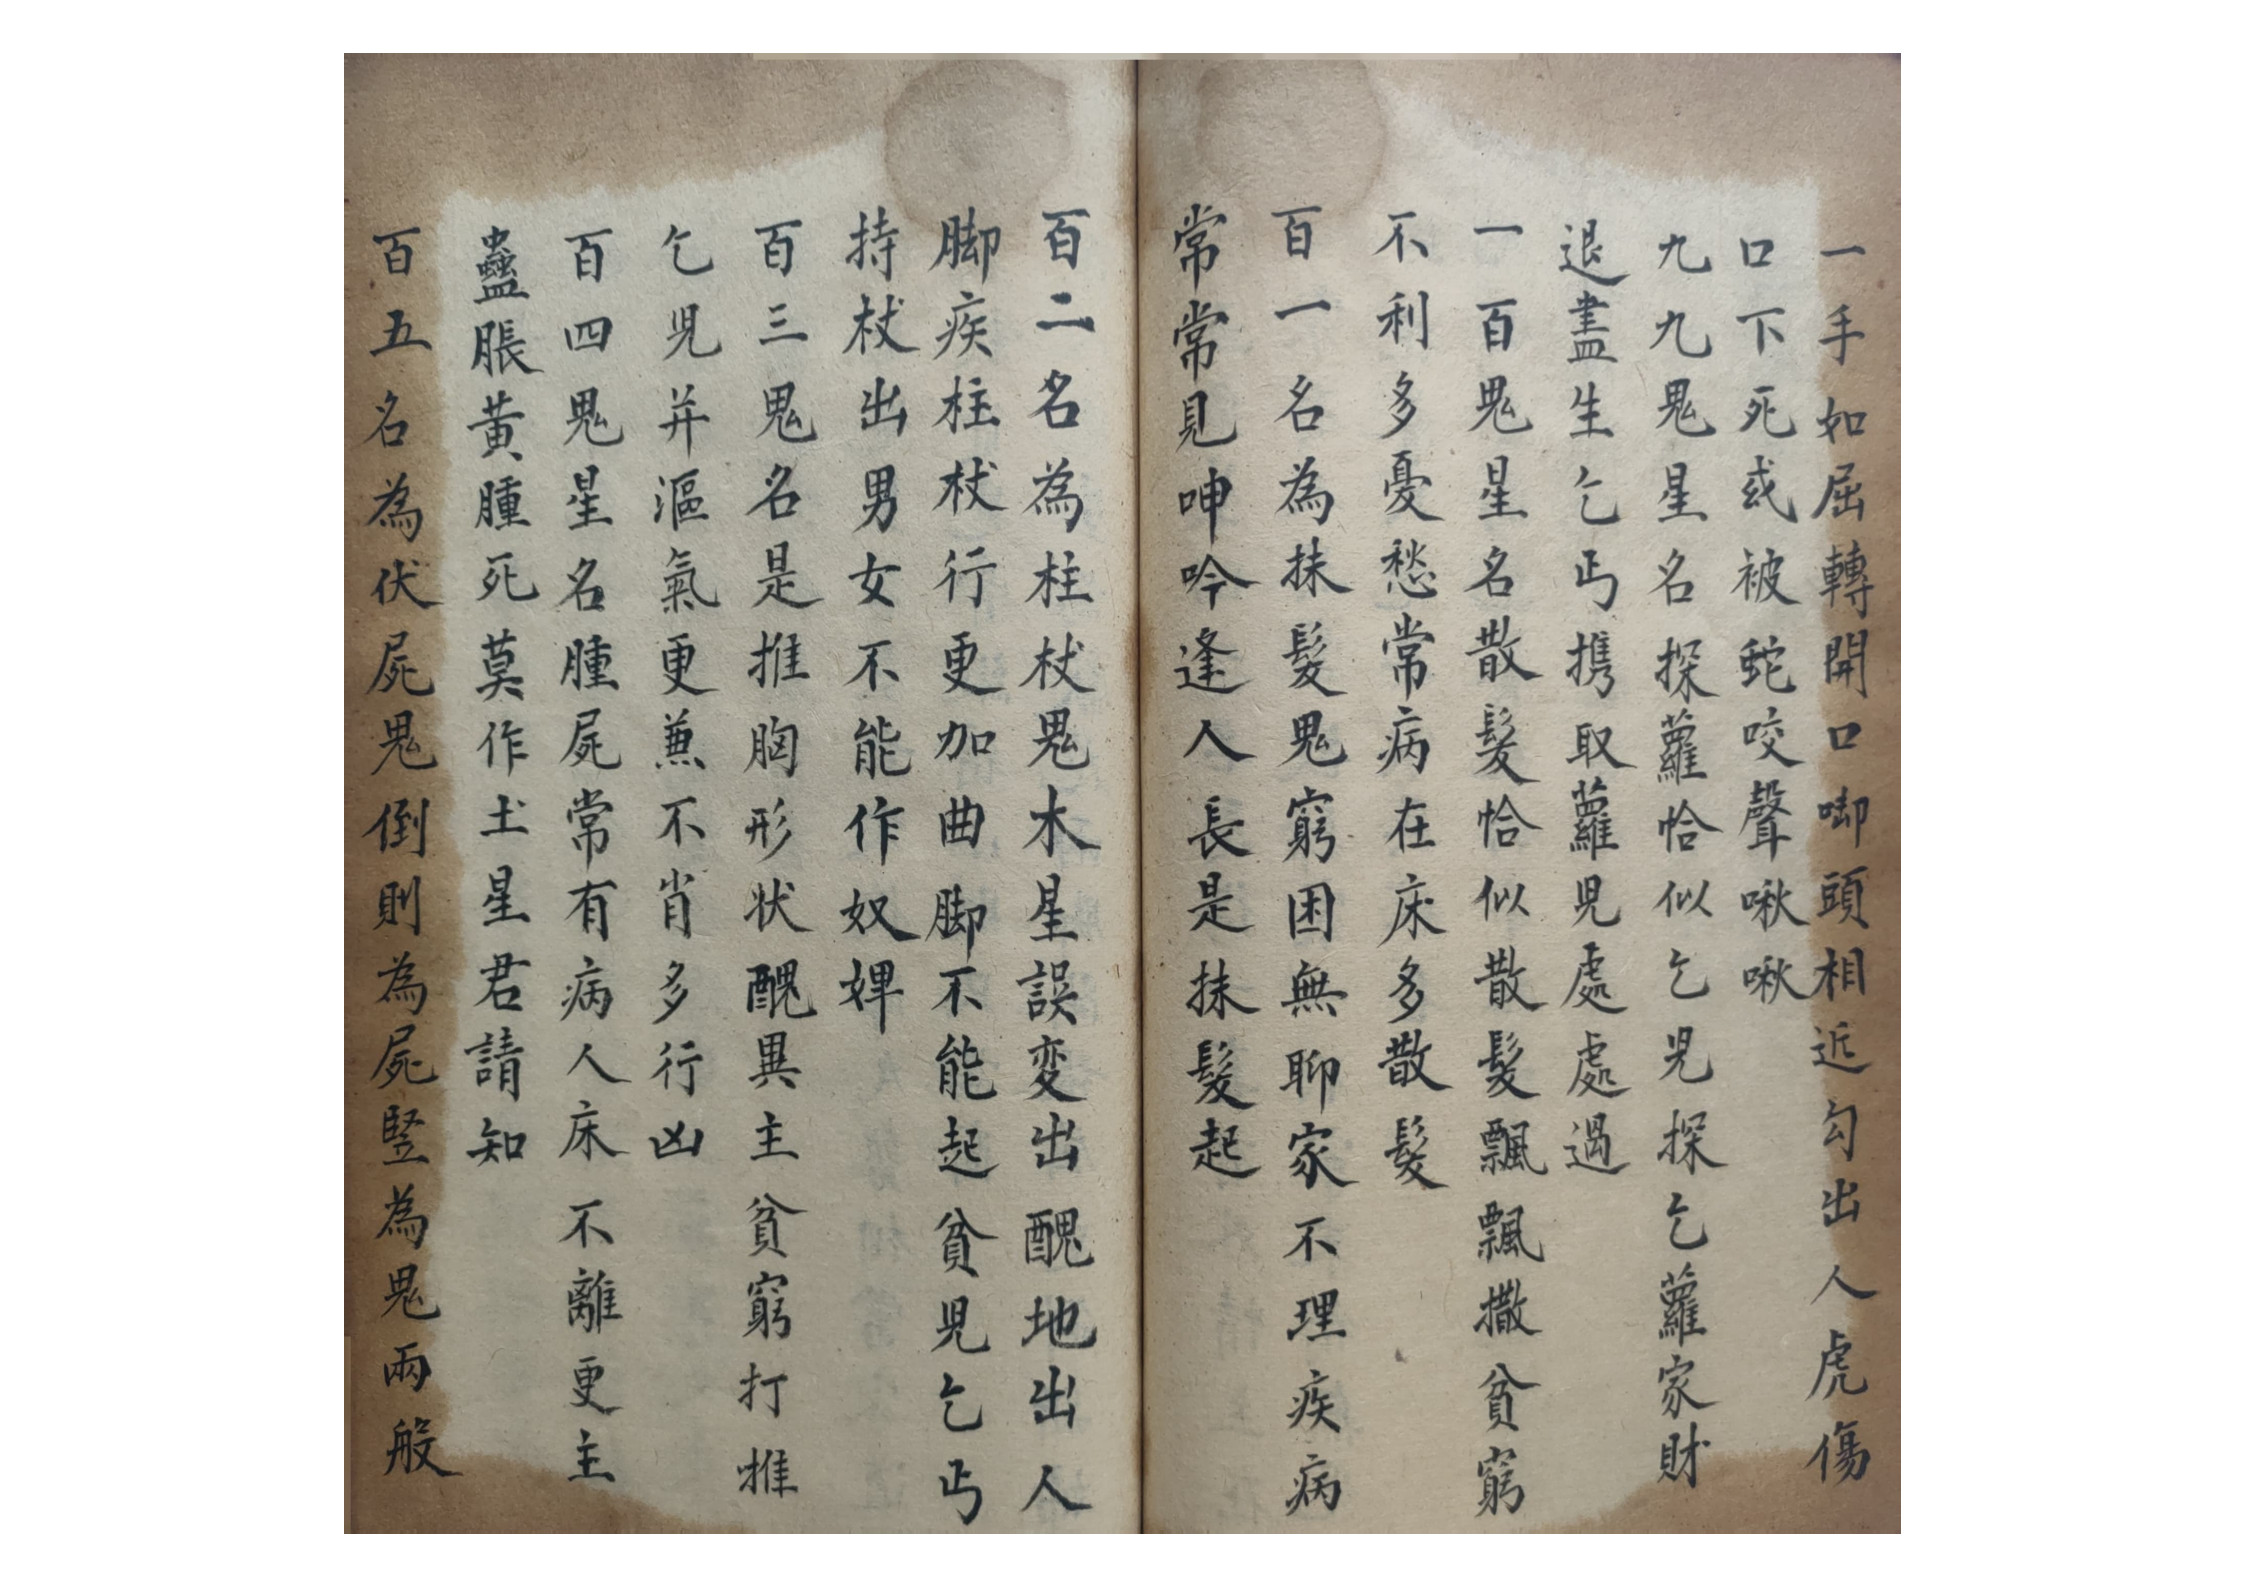 一手如屈轉開口啣頭相近勾出人虎傷
口下死或被蛇咬聲啾啾
九九鬼星名探蘿恰似乞児探乞蘿家財
退盡生乞丐携取蘿児處處過
一百鬼星名散髮恰似散髮飄飄撒貧窮
不利多憂愁常病在床多散髮
百一名為抹髮鬼窮困無聊家不理疾病
常常見呻吟逢人長是抹髮起
百二名為柱杖鬼木星誤変出醜地出人
脚疾柱杖行更加曲脚不能起貧児乞丐
持杖出男女不能作奴婢
百三鬼名是推胸形状醜異主貧窮打推
乞児并漚氣更兼不肖多行凶
百四鬼星名腫屍常有病人床不離更主
蠱脹黃腫死莫作土星君請知
百五名為伏屍鬼倒則為屍竪為鬼兩般